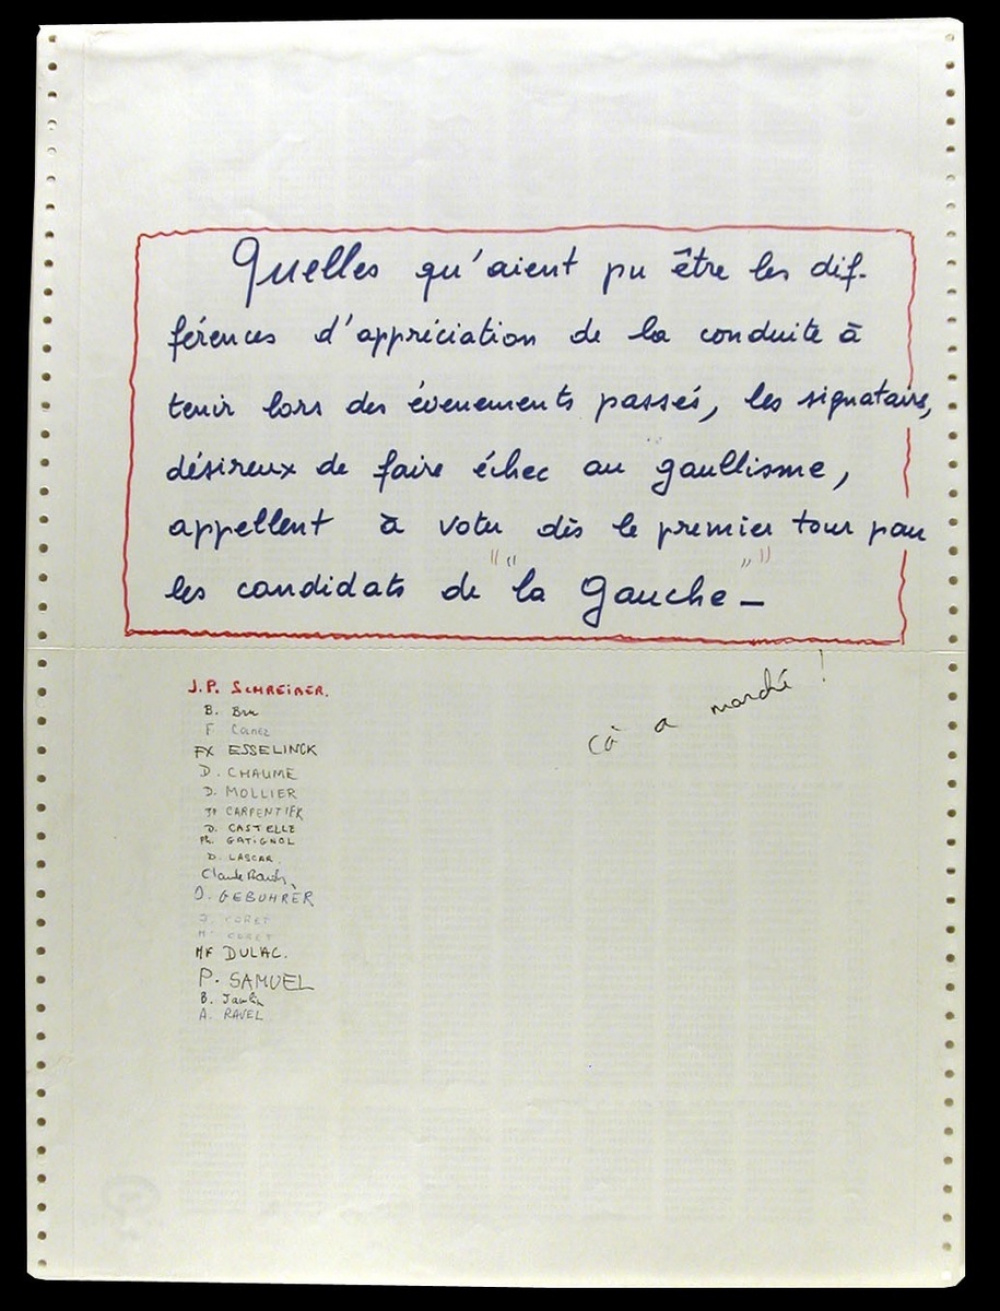 Quelles qu'aient pu être les dif-
férences d'appréciation de la conduite à
tenir lors des évènements passés, les signataires,
désireux de faire échec au gaullisme,
appellent à voter dès le premier tour pour
les candidats de "la Gauche" —
çà a marché !
J.P. SCHREIBER.
B.
F
FX ESSELINCK
D. CHAUME
D. MOLLIER
JP CARPENTIER
D. CASTELLE
Ph. GATIGNOL
D. LASCAR
Claude
O. GEBUHRER
J. CORET
M. CORET
MF DULAC.
P. SAMUEL
B.
A. RAVEL